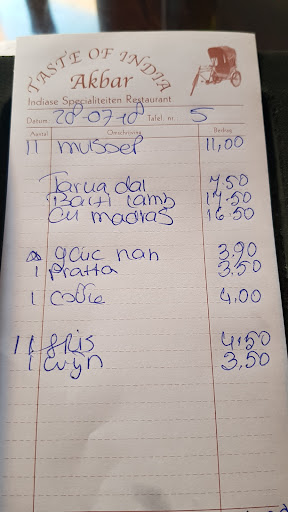 TASTE OF INDIA
Akbar
Indiase Specialiteiten Restaurant
Datum 28-07-18 Tafel nr. 5
Aantal Omschrijving Bedrag
11 mussel 11,00
Tarua dal 7.50
Balti lamb 17.50
cu madras 16.50
garlic nan 3.90
1 pratta 3.50
1 coffie 4,00
11 fris 4.50
1 wyn 3,50